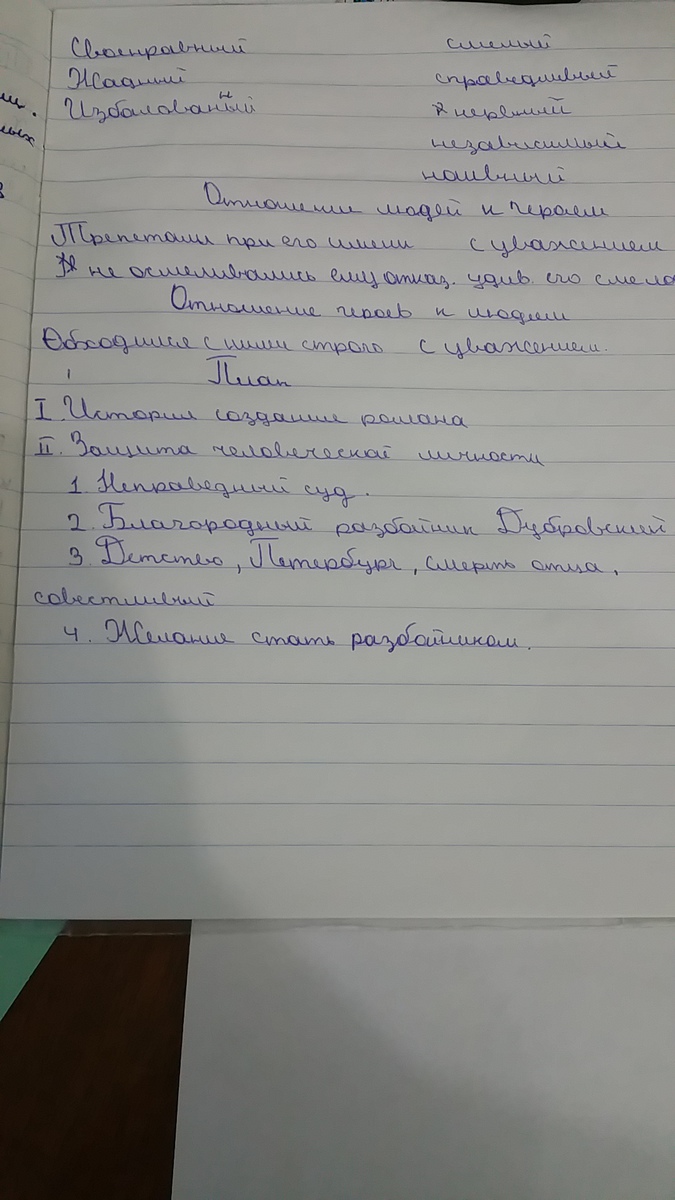 Своенравный смелый
Жадный справедливый
Избалованый н нервный
независимый
наивный
Отношение людей к героям
Трепетали при его имени с уважением
не осмеливались ему отказ. удив. его смело
Отношение героев к людям
Обходился с ними строго с уважением.
План
I. История создание романа
II. Защита человеческой личности
1. Неправедный суд.
2. Благородный разбойник Дубровский
3. Детство, Петербург, смерть отца,
совестливый
4. Желание стать разбойником.